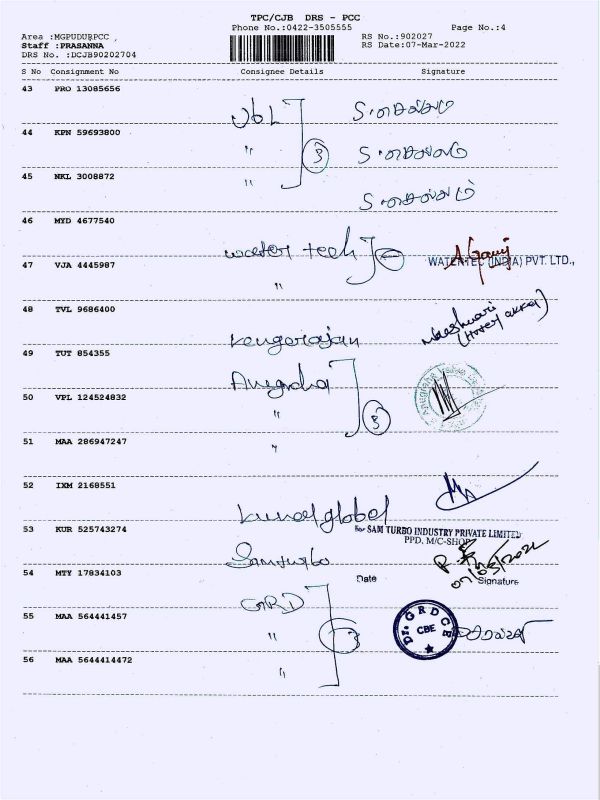 TPC/CJB DRS - PCC
Phone No.:0422-3505555 Page No.:4
Area :MGPUDUR,PCC , RS No.:902027
Staff :PRASANNA RS Date:07-Mar-2022
DRS No. :DCJB90202704
S No Consignment No Consignee Details Signature
43 PRO 13085656
UbL S.செல்வம்
44 KPN 59693800
" 3 S.செல்வம்
45 NKL 3008872
" S.செல்வம்
46 MYD 4677540
water tech
47 VJA 4445987 WATERTEC (INDIA) PVT. LTD.,
"
48 TVL 9686400
Rengarajan
49 TUT 854355
Anegrha
50 VPL 124524832
" 3
51 MAA 286947247
"
52 IXM 2168551
Kunal global
53 KUR 525743274 For SAM TURBO INDUSTRY PRIVATE LIMITED
PPD, M/C-SHOP
Samturbo
07/03/2022
54 MTY 17834103 Date Signature
GRD
55 MAA 564441457 Dr. G R D C E
" 3 CBE
56 MAA 5644414472
"